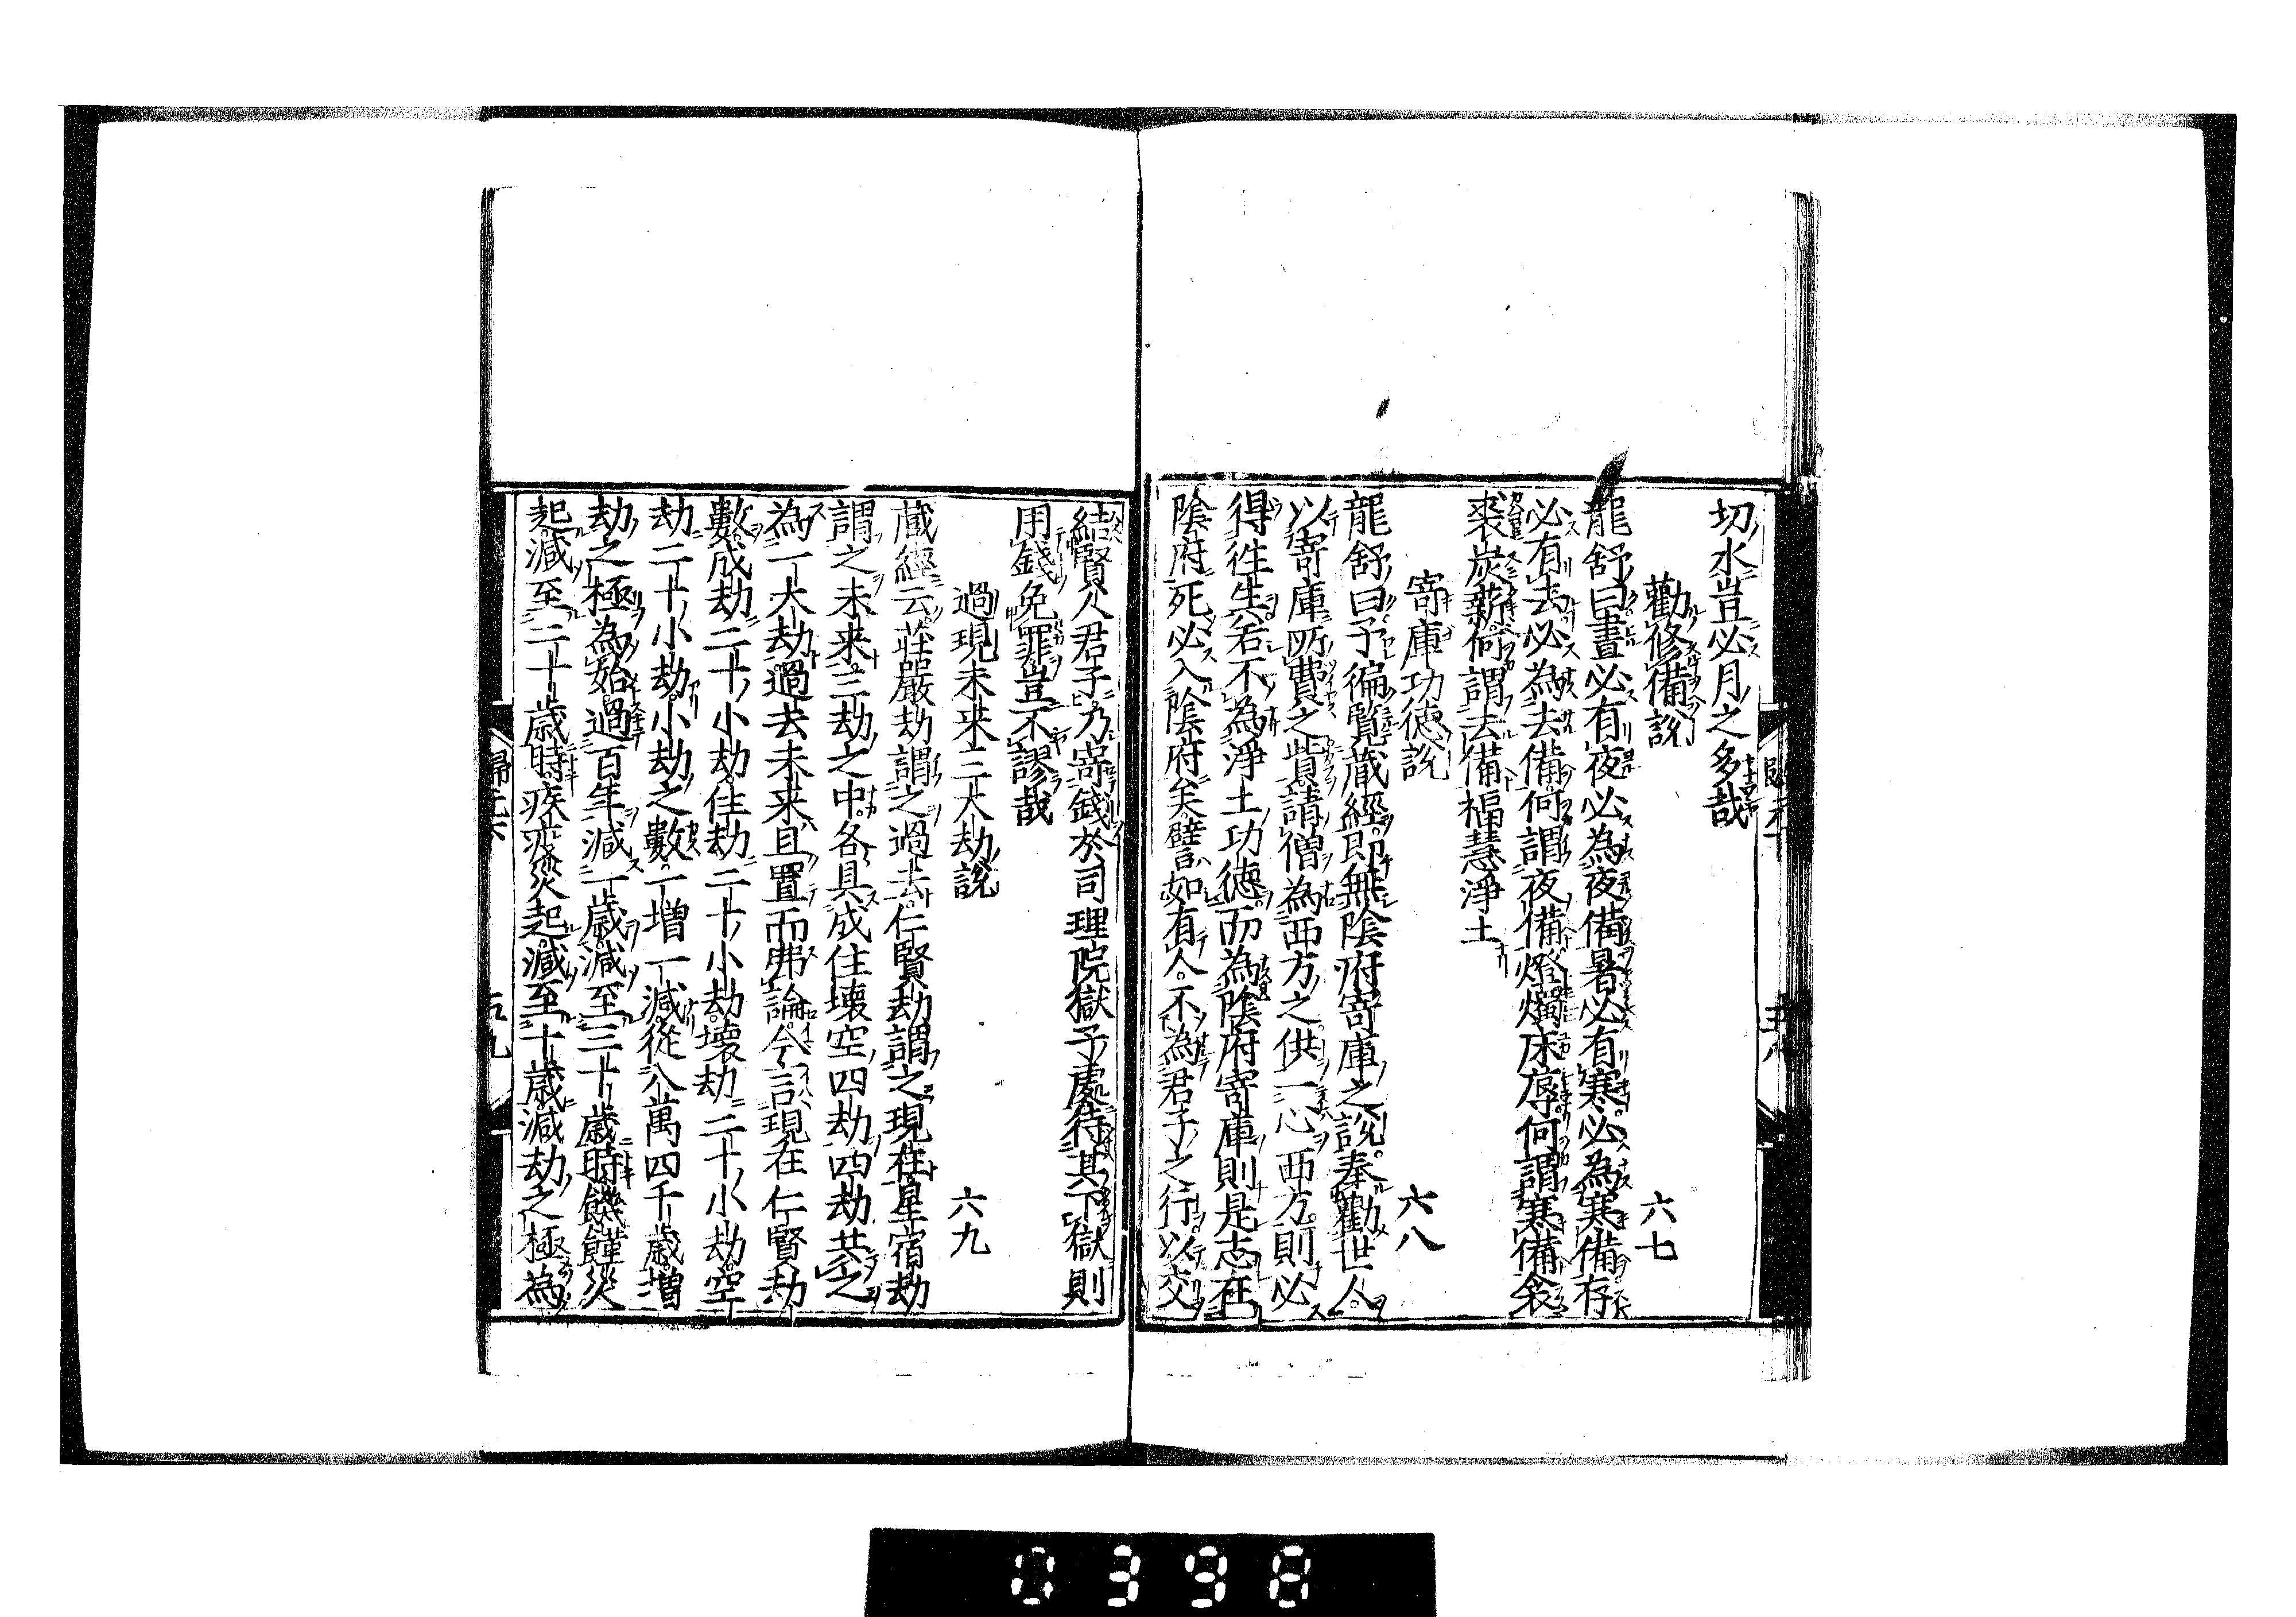 切水豈必月之多哉
勸修備說 六七
龍舒曰晝必有夜必為夜備暑必有寒必為寒備存
必有去必為去備何謂夜備燈燭床蓐何謂寒備衾
裘炭薪何謂去備福慧淨土
寄庫功德說 六八
龍舒曰予徧覽藏經即無陰府寄庫之說奉勸世人
以寄庫所費之貲請僧為西方之供一心西方則必
得往生若不為淨土功德而為陰府寄庫則是志在
陰府死必入陰府矣譬如有人不為君子之行以交
結賢人君子乃寄錢於司理院獄子處待其下獄則
用錢免罪豈不謬哉
過現未来三大劫說 六九
藏經云莊嚴劫謂之過去仁賢劫謂之現在星宿劫
謂之未来三劫之中各具成住壞空四劫四劫共之
為一大劫過去未来且置而弗論今言現在仁賢劫
數成劫二十小劫住劫二十小劫壞劫二十小劫空
劫二十小劫小劫之數一增一減從八萬四千歲增
劫之極為始過百年減一歲減至三十歲時饑饉災
起減至二十歲時疾疫災起減至十歲減劫之極為
歸元下
五九
0398